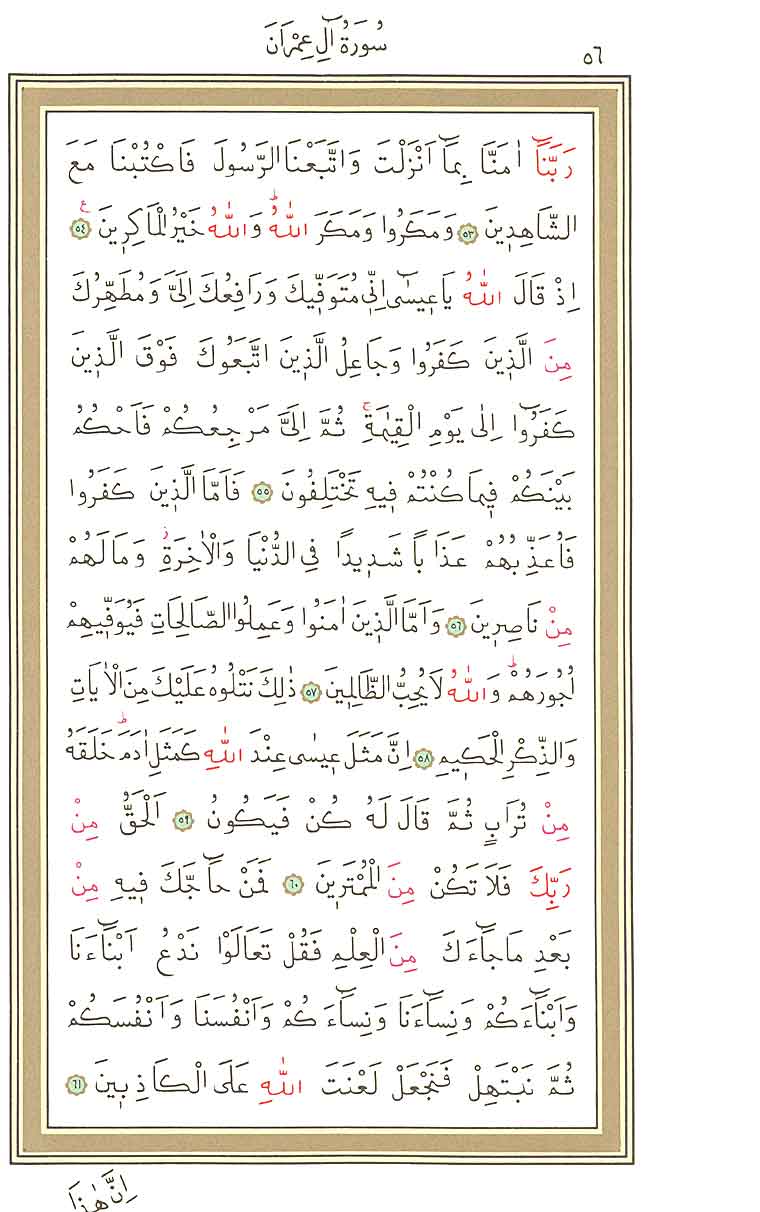 ٥٦
سُورَةُ اٰلِ عِمْرَانَ
رَبَّنَٓا اٰمَنَّا بِمَٓا اَنْزَلْتَ وَاتَّبَعْنَا الرَّسُولَ فَاكْتُبْنَا مَعَ
الشَّاهِدٖينَ ٥٣ وَمَكَرُوا وَمَكَرَ اللّٰهُؕ وَاللّٰهُ خَيْرُ الْمَاكِرٖينَ ع ٥٤
اِذْ قَالَ اللّٰهُ يَا عٖيسٰٓى اِنّٖى مُتَوَفّٖيكَ وَرَافِعُكَ اِلَىَّ وَمُطَهِّرُكَ
مِنَ الَّذٖينَ كَفَرُوا وَجَاعِلُ الَّذٖينَ اتَّبَعُوكَ فَوْقَ الَّذٖينَ
كَفَرُٓوا اِلٰى يَوْمِ الْقِيٰمَةِۚ ثُمَّ اِلَىَّ مَرْجِعُكُمْ فَاَحْكُمُ
بَيْنَكُمْ فٖيمَا كُنْتُمْ فٖيهِ تَخْتَلِفُونَ ٥٥ فَاَمَّا الَّذٖينَ كَفَرُوا
فَاُعَذِّبُهُمْ عَذَابًا شَدٖيدًا فِى الدُّنْيَا وَالْاٰخِرَةِؗ وَمَا لَهُمْ
مِنْ نَاصِرٖينَ ٥٦ وَاَمَّا الَّذٖينَ اٰمَنُوا وَعَمِلُوا الصَّالِحَاتِ فَيُوَفّٖيهِمْ
اُجُورَهُمْؕ وَاللّٰهُ لَا يُحِبُّ الظَّالِمٖينَ ٥٧ ذٰلِكَ نَتْلُوهُ عَلَيْكَ مِنَ الْاٰيَاتِ
وَالذِّكْرِ الْحَكٖيمِ ٥٨ اِنَّ مَثَلَ عٖيسٰى عِنْدَ اللّٰهِ كَمَثَلِ اٰدَمَؕ خَلَقَهُ
مِنْ تُرَابٍ ثُمَّ قَالَ لَهُ كُنْ فَيَكُونُ ٥٩ اَلْحَقُّ مِنْ
رَبِّكَ فَلَا تَكُنْ مِنَ الْمُمْتَرٖينَ ٦٠ فَمَنْ حَٓاجَّكَ فٖيهِ مِنْ
بَعْدِ مَا جَٓاءَكَ مِنَ الْعِلْمِ فَقُلْ تَعَالَوْا نَدْعُ اَبْنَٓاءَنَا
وَاَبْنَٓاءَكُمْ وَنِسَٓاءَنَا وَنِسَٓاءَكُمْ وَاَنْفُسَنَا وَاَنْفُسَكُمْ
ثُمَّ نَبْتَهِلْ فَنَجْعَلْ لَعْنَتَ اللّٰهِ عَلَى الْكَاذِبٖينَ ٦١
اِنَّ هٰذَا